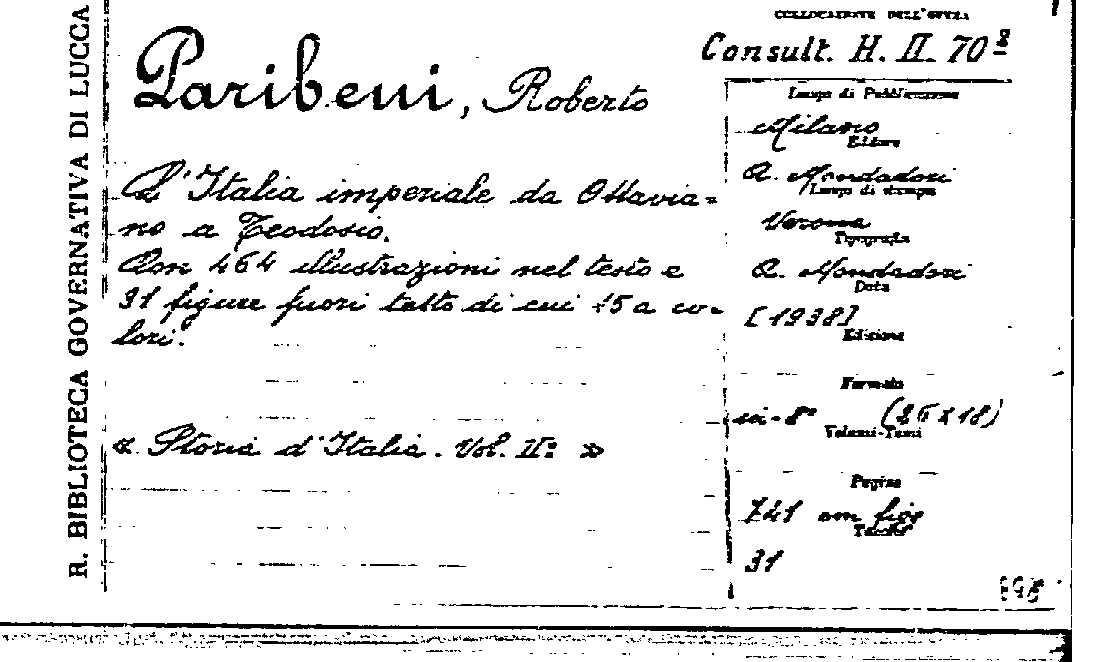 R. BIBLIOTECA GOVERNATIVA DI LUCCA
COLLOCAZIONE DELL'OPERA
Consult. H. II. 70²
Paribeni, Roberto
L'Italia imperiale da Ottavia=
no a Teodosio.
Con 464 illustrazioni nel testo e
31 figure fuori testo di cui 15 a co-
lori.
« Storia d'Italia. Vol. II° »
Luogo di Pubblicazione
Milano
Editore
A. Mondadori
Luogo di stampa
Verona
Tipografia
A. Mondadori
Data
[1938]
Edizione
Formato
in-8° (26x18)
Volumi-Tomi
Pagine
741 con figg
Tavole
31